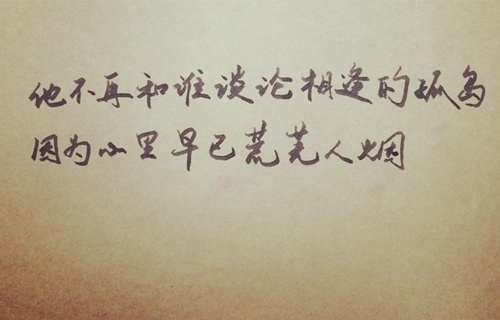 他不再和谁谈论相逢的孤岛
因为心里早已荒芜人烟